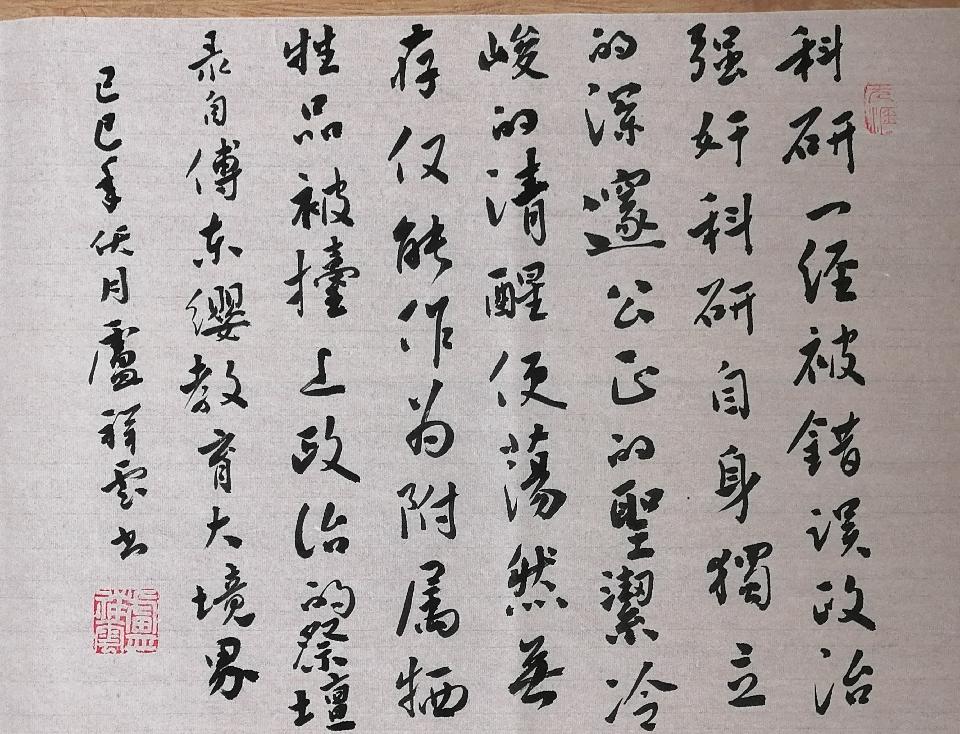 科研一经被錯误政治
强奸科研自身獨立
的深邃公正的聖潔冷
峻的清醒便荡然無
存仅能作为附属牺
牲品被擡上政治的祭壇
录自傅东缨教育大境界
己巳年伏月盧祥云书